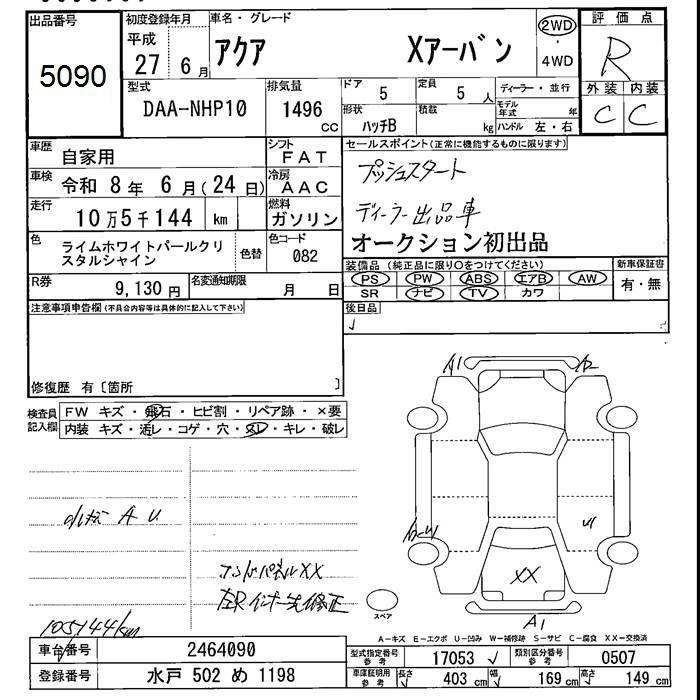 出品番号
5090
初度登録年月
平成
27 6月
車名・グレード
アクア Xアーバン
2WD
・
4WD
評価点
R
外装 内装
C C
型式
DAA-NHP10
排気量
1496
cc
ドア
5
定員
5 人
ディーラー・並行
モデル年式 年
形状
ハッチB
積載
kg
ハンドル 左・右
車歴
自家用
シフト
FAT
車検
令和 8年 6月(24日)
冷房
AAC
走行
10万5千144 km
燃料
ガソリン
色
ライムホワイトパールクリスタルシャイン
色替
色コード
082
R券
9,130 円
名変通知期限
月 日
セールスポイント(正常に機能するものに限ります)
プッシュスタート
ディーラー出品車
オークション初出品
装備品(純正品に限り○をつけてください)
PS PW ABS エアB AW
SR ナビ TV カワ
新車保証書
有・無
後日品
注意事項申告欄(不具合内容等は具体的に記入して下さい)
修復歴 有〔箇所 〕
検査員記入欄
FW キズ・飛石・ヒビ割・リペア跡・×要
内装 キズ・汚レ・コゲ・穴・スレ・キレ・破レ
A U
XX
105144km
A1
A2
XX
A1
スペア
A-キズ E-エクボ U-凹み W-補修跡 S-サビ C-腐食 XX-交換済
車台番号
2464090
登録番号
水戸 502 め 1198
型式指定番号
参考
17053
類別区分番号
参考
0507
車庫証明用
参考
長さ
403 cm
幅
169 cm
高さ
149 cm